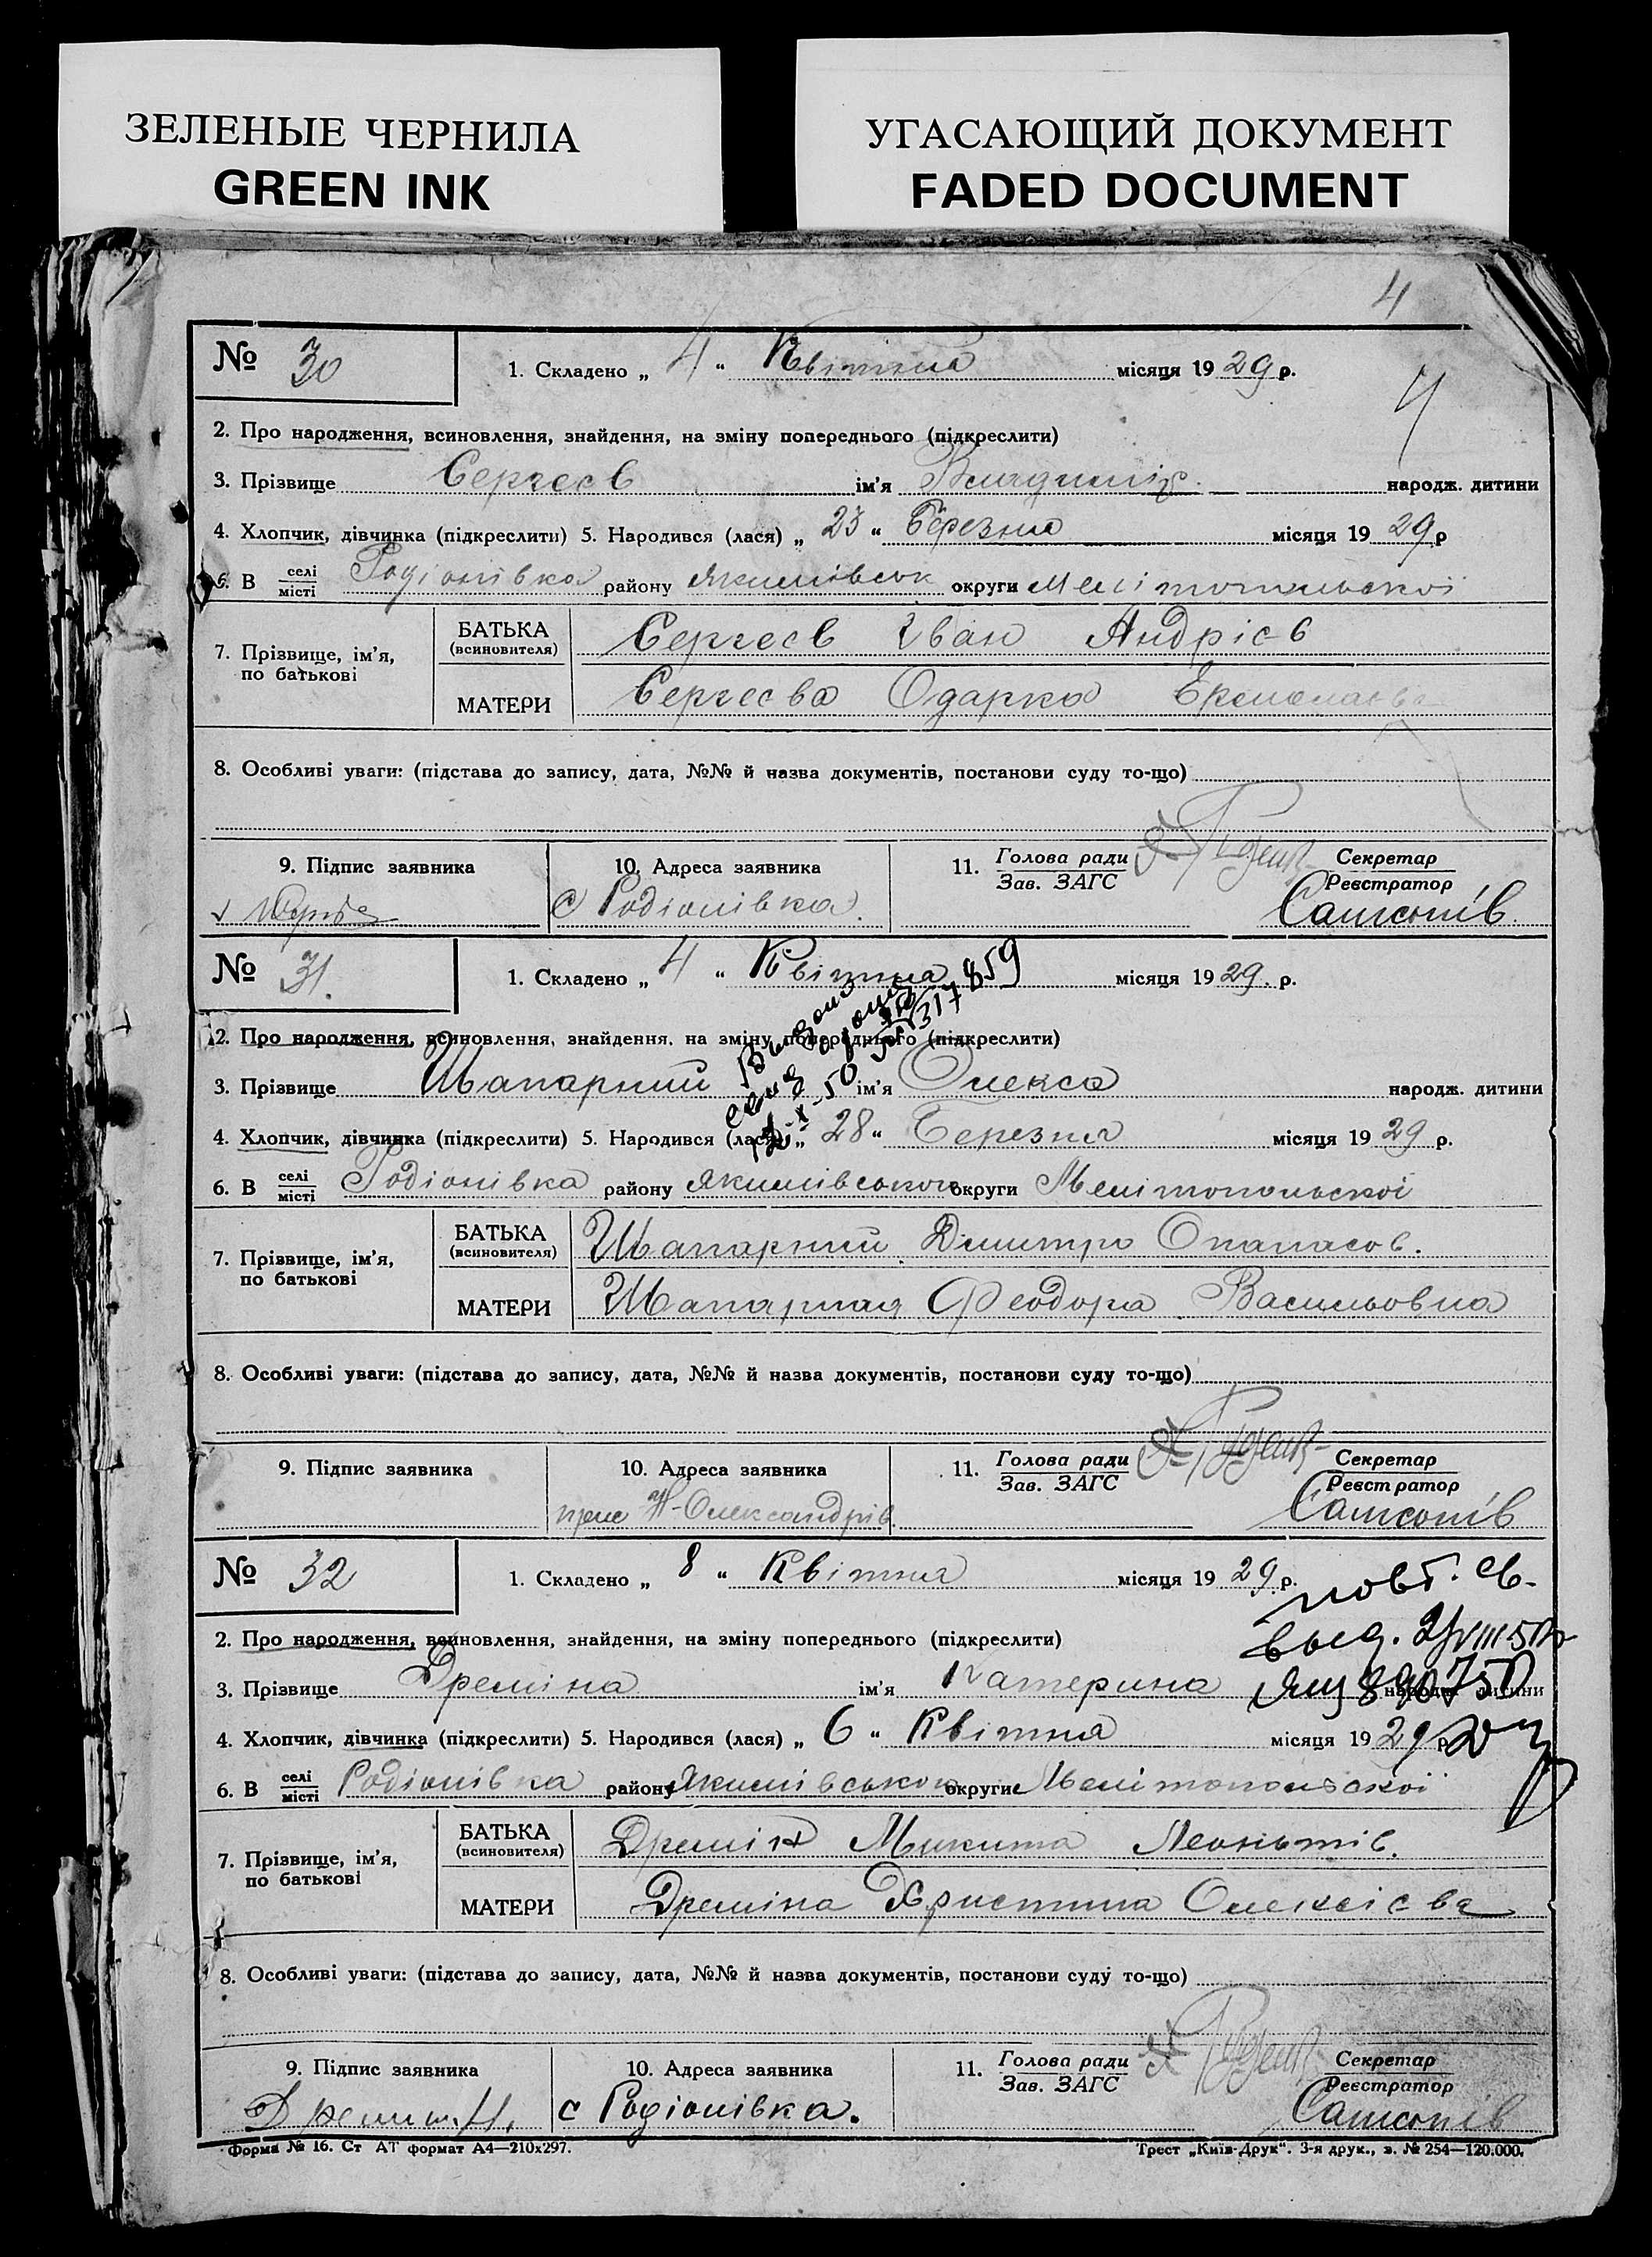 ЗЕЛЕНЫЕ ЧЕРНИЛА
GREEN INK
УГАСАЮЩИЙ ДОКУМЕНТ
FADED DOCUMENT
4
№ 30
1. Складено „ 4 “ Квітня місяця 19 29 р.
4
2. Про народження, всиновлення, знайдення, на зміну попереднього (підкреслити)
3. Прізвище Сергєєв ім'я народж. дитини
4. Хлопчик, дівчинка (підкреслити) 5. Народився (лася) „ 23 “ Березня місяця 19 29 р
6. В селі місті Родіонівка району Якимівськ округи Мелітопильскої
7. Прізвище, ім'я, по батькові
БАТЬКА (всиновителя) Сергєєв Іван Андрієв
МАТЕРИ Сергєєва Одарка
8. Особливі уваги: (підстава до запису, дата, №№ й назва документів, постанови суду то-що)
9. Підпис заявника
10. Адреса заявника
с Родіонівка.
11. Голова ради Зав. ЗАГС
Секретар Реєстратор
Самсонів
№ 31.
1. Складено „ 4 “ Квітня місяця 19 29. р.
2. Про народження, всиновлення, знайдення, на зміну попереднього (підкреслити)
3. Прізвище Шапарний ім'я Олекса народж. дитини
4. Хлопчик, дівчинка (підкреслити) 5. Народився (лася) „ 28 “ Березня місяця 19 29 р.
6. В селі місті Родіонівка району Якимівського округи Мелітопольскої
7. Прізвище, ім'я, по батькові
БАТЬКА (всиновителя) Шапарний Дмитро Опанасов.
МАТЕРИ Шапарная Феодора Васильовна
8. Особливі уваги: (підстава до запису, дата, №№ й назва документів, постанови суду то-що)
9. Підпис заявника
10. Адреса заявника
Олександрів.
11. Голова ради Зав. ЗАГС
Секретар Реєстратор
Самсонів
№ 32
1. Складено „ 8 “ Квітня місяця 19 29 р.
повт. св.
2. Про народження, всиновлення, знайдення, на зміну попереднього (підкреслити)
выд.
3. Прізвище Дреміна ім'я Катерина народж. дитини
4. Хлопчик, дівчинка (підкреслити) 5. Народився (лася) „ 6 “ Квітня місяця 19 29 р
6. В селі місті Родіонівка району Якимівського округи Мелітопольської
7. Прізвище, ім'я, по батькові
БАТЬКА (всиновителя) Дремін Микита Леонытів.
МАТЕРИ Дреміна Христина Олексієва
8. Особливі уваги: (підстава до запису, дата, №№ й назва документів, постанови суду то-що)
9. Підпис заявника
10. Адреса заявника
с Родіонівка.
11. Голова ради Зав. ЗАГС
Секретар Реєстратор
Самсонів
Форма № 16. Ст АТ формат А4—210х297.
Трест „Київ-Друк“. 3-я друк., з. № 254—120.000.